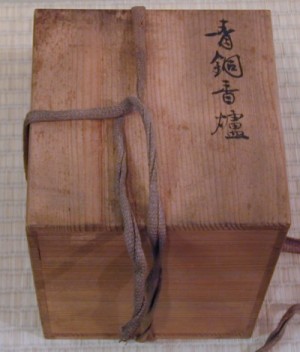 青銅香爐